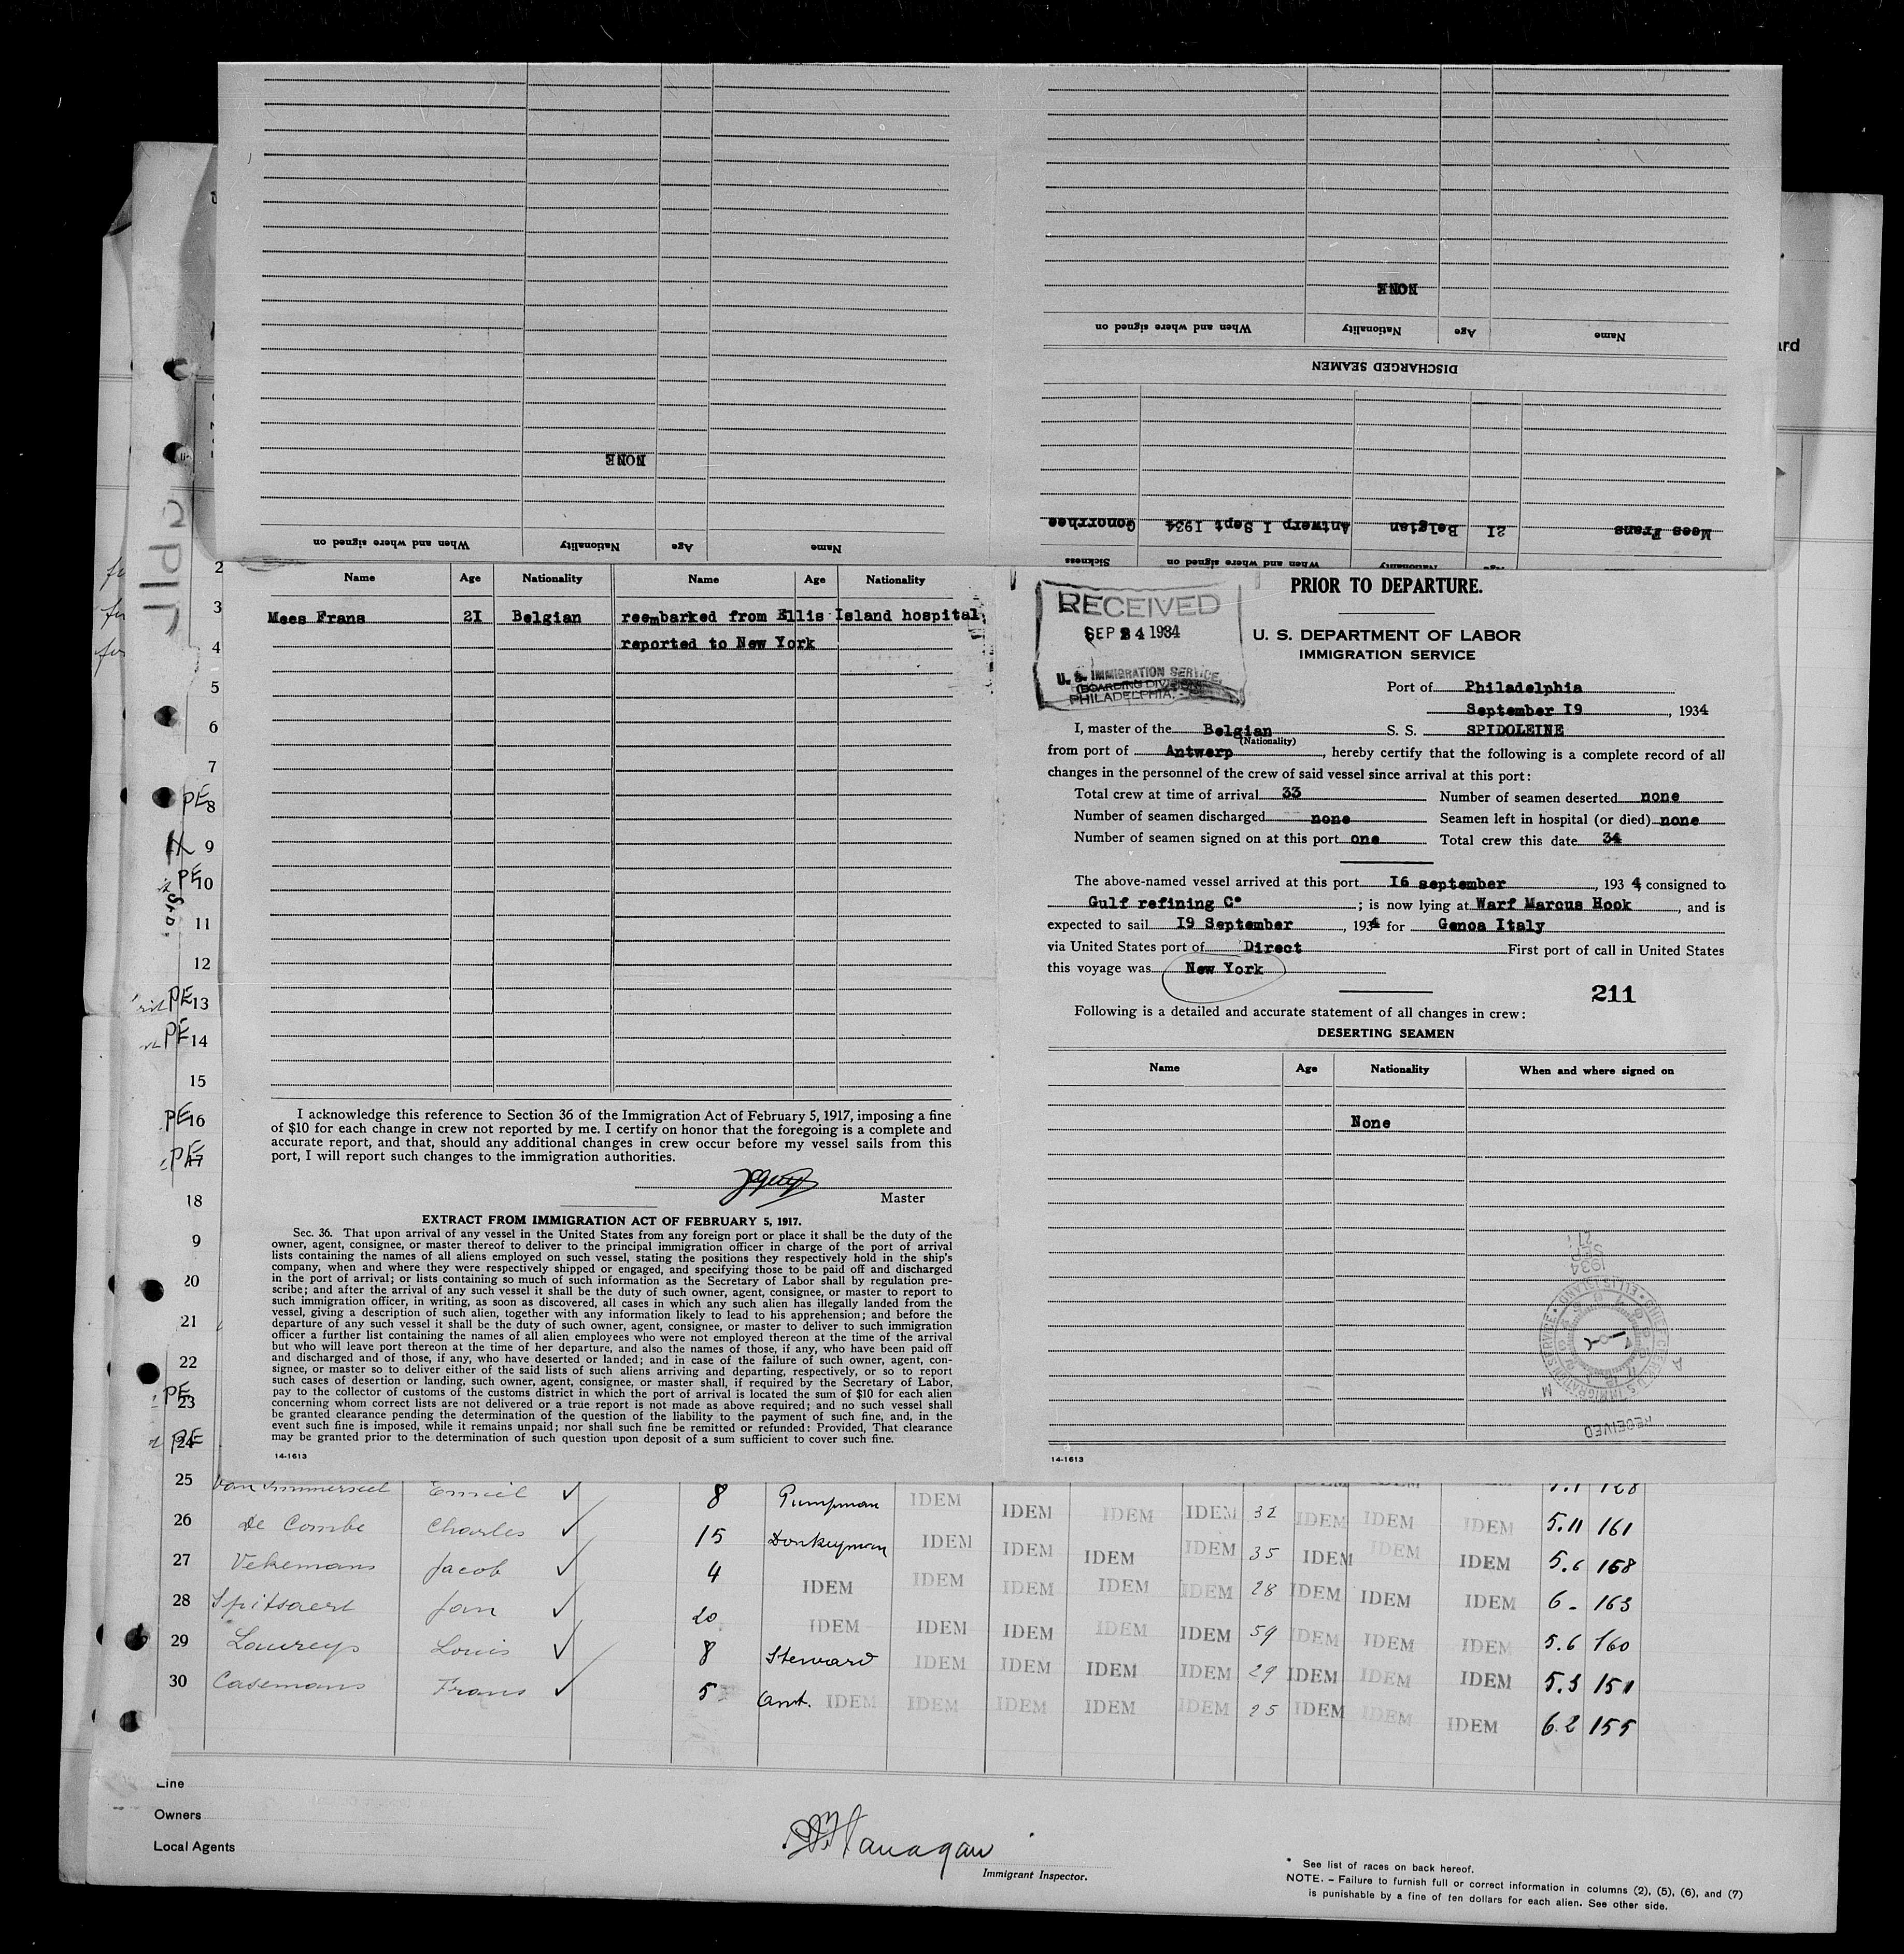 NONE
When and where signed on Nationality Age Name
NONE
When and where signed on Nationality Age Name
DISCHARGED SEAMEN
Mees Frans 21 Belgian Antwerp 1 Sept 1934 Gonorrhee
Age Nationality When and where signed on Sickness
Name Age Nationality Name Age Nationality
Mees Frans 2I Belgian reembarked from Ellis Island hospital
reported to New York
I acknowledge this reference to Section 36 of the Immigration Act of February 5, 1917, imposing a fine
of $10 for each change in crew not reported by me. I certify on honor that the foregoing is a complete and
accurate report, and that, should any additional changes in crew occur before my vessel sails from this
port, I will report such changes to the immigration authorities.
Master
EXTRACT FROM IMMIGRATION ACT OF FEBRUARY 5, 1917.
Sec. 36. That upon arrival of any vessel in the United States from any foreign port or place it shall be the duty of the
owner, agent, consignee, or master thereof to deliver to the principal immigration officer in charge of the port of arrival
lists containing the names of all aliens employed on such vessel, stating the positions they respectively hold in the ship's
company, when and where they were respectively shipped or engaged, and specifying those to be paid off and discharged
in the port of arrival; or lists containing so much of such information as the Secretary of Labor shall by regulation pre-
scribe; and after the arrival of any such vessel it shall be the duty of such owner, agent, consignee, or master to report to
such immigration officer, in writing, as soon as discovered, all cases in which any such alien has illegally landed from the
vessel, giving a description of such alien, together with any information likely to lead to his apprehension; and before the
departure of any such vessel it shall be the duty of such owner, agent, consignee, or master to deliver to such immigration
officer a further list containing the names of all alien employees who were not employed thereon at the time of the arrival
but who will leave port thereon at the time of her departure, and also the names of those, if any, who have been paid off
and discharged and of those, if any, who have deserted or landed; and in case of the failure of such owner, agent, con-
signee, or master so to deliver either of the said lists of such aliens arriving and departing, respectively, or so to report
such cases of desertion or landing, such owner, agent, consignee, or master shall, if required by the Secretary of Labor,
pay to the collector of customs of the customs district in which the port of arrival is located the sum of $10 for each alien
concerning whom correct lists are not delivered or a true report is not made as above required; and no such vessel shall
be granted clearance pending the determination of the question of the liability to the payment of such fine, and, in the
event such fine is imposed, while it remains unpaid; nor shall such fine be remitted or refunded: Provided, That clearance
may be granted prior to the determination of such question upon deposit of a sum sufficient to cover such fine.
14-1613
PRIOR TO DEPARTURE.
RECEIVED
SEP 24 1934
U. S. IMMIGRATION SERVICE,
(BOARDING DIVISION)
PHILADELPHIA,
U. S. DEPARTMENT OF LABOR
IMMIGRATION SERVICE
Port of Philadelphia
September I9, 1934
I, master of the Belgian S. S. SPIDOLEINE
(Nationality)
from port of Antwerp, hereby certify that the following is a complete record of all
changes in the personnel of the crew of said vessel since arrival at this port:
Total crew at time of arrival 33 Number of seamen deserted none
Number of seamen discharged none Seamen left in hospital (or died) none
Number of seamen signed on at this port one Total crew this date 34
The above-named vessel arrived at this port I6 september, 193 4 consigned to
Gulf refining C°; is now lying at Warf Marcus Hook, and is
expected to sail I9 September, 1934 for Genoa Italy
via United States port of Direct First port of call in United States
this voyage was New York
211
Following is a detailed and accurate statement of all changes in crew:
DESERTING SEAMEN
Name Age Nationality When and where signed on
None
1934
SEP
21
CHIEF CLERK U.S. IMMIGRATION SERVICE ELLIS ISLAND
RECEIVED
14-1613
2
3
4
5
6
7
PE 8
9
PE 10
11
12
PE 13
PE 14
15
PE 16
PE 17
18
9
20
21
22
PE 23
PE 24
25 Van Immerseel Emiel ✓ 8 Pumpman IDEM IDEM IDEM IDEM 32 IDEM IDEM IDEM 5.11 161
26 De Combe Charles ✓ 15 Donkeyman IDEM IDEM IDEM IDEM 35 IDEM IDEM IDEM 5.6 158
27 Vekemans Jacob ✓ 4 IDEM IDEM IDEM IDEM IDEM 28 IDEM IDEM IDEM 6- 163
28 Spitsaert Jan ✓ 20 IDEM IDEM IDEM IDEM IDEM 59 IDEM IDEM IDEM 5.6 160
29 Laureys Louis ✓ 8 Steward IDEM IDEM IDEM IDEM 29 IDEM IDEM IDEM 5.3 151
30 Casemans Frans ✓ 5 Asst. IDEM IDEM IDEM IDEM IDEM 25 IDEM IDEM IDEM 6.2 155
Line
Owners
Local Agents
Flanagan
Immigrant Inspector.
* See list of races on back hereof.
NOTE. – Failure to furnish full or correct information in columns (2), (5), (6), and (7)
is punishable by a fine of ten dollars for each alien. See other side.